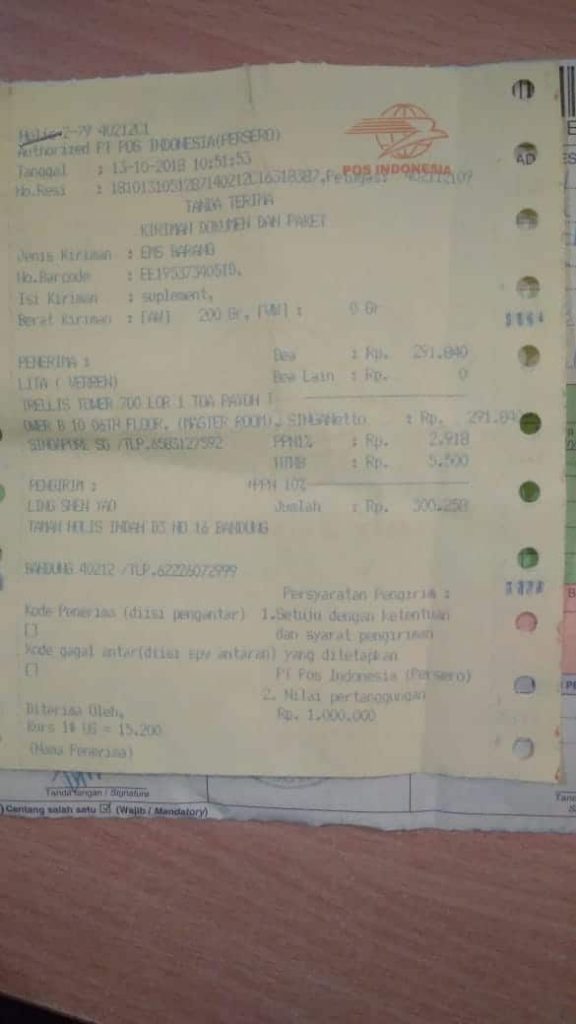 2-79 40212C1
Authorized PT POS INDONESIA(PERSERO)
POS INDONESIA
Tanggal : 13-10-2018 10:51:53
No.Resi : Petugas:
TANDA TERIMA
KIRIMAN DOKUMEN DAN PAKET
Jenis Kiriman : EMS BARANG
No.Barcode :
Isi Kiriman : suplement,
Berat Kiriman : [AW] 200 Gr, [VW] : 0 Gr
PENERIMA : Bea : Rp. 291.840
LITA ( Bea Lain : Rp. 0
TRELLIS TOWER 700 LOR 1 TOA PAYOH T
OWER B 10 06TH FLOOR, (MASTER ROOM), SINGANetto : Rp. 291.840
SINGAPURE SG /TLP.6583127592 PPN1% : Rp. 2.918
: Rp. 5.500
PENGIRIM : +PPN 10%
LING SHEN YAO Jumlah : Rp. 300.258
TAMAN HOLIS INDAH D3 NO 16 BANDUNG
BANDUNG 40212 /TLP.62226072999
Persyaratan Pengirim :
Kode Penerima (diisi pengantar) 1.Setuju dengan ketentuan
[] dan syarat pengiriman
Kode gagal antar(diisi spv antaran) yang ditetapkan
[] PT Pos Indonesia (Persero)
2. Nilai pertanggungan
Diterima Oleh, Rp. 1.000.000
Kurs 1$ US = 15.200
(Nama Penerima)
Tanda tangan / Signature
) Centang salah satu ☑ (Wajib / Mandatory)
AD